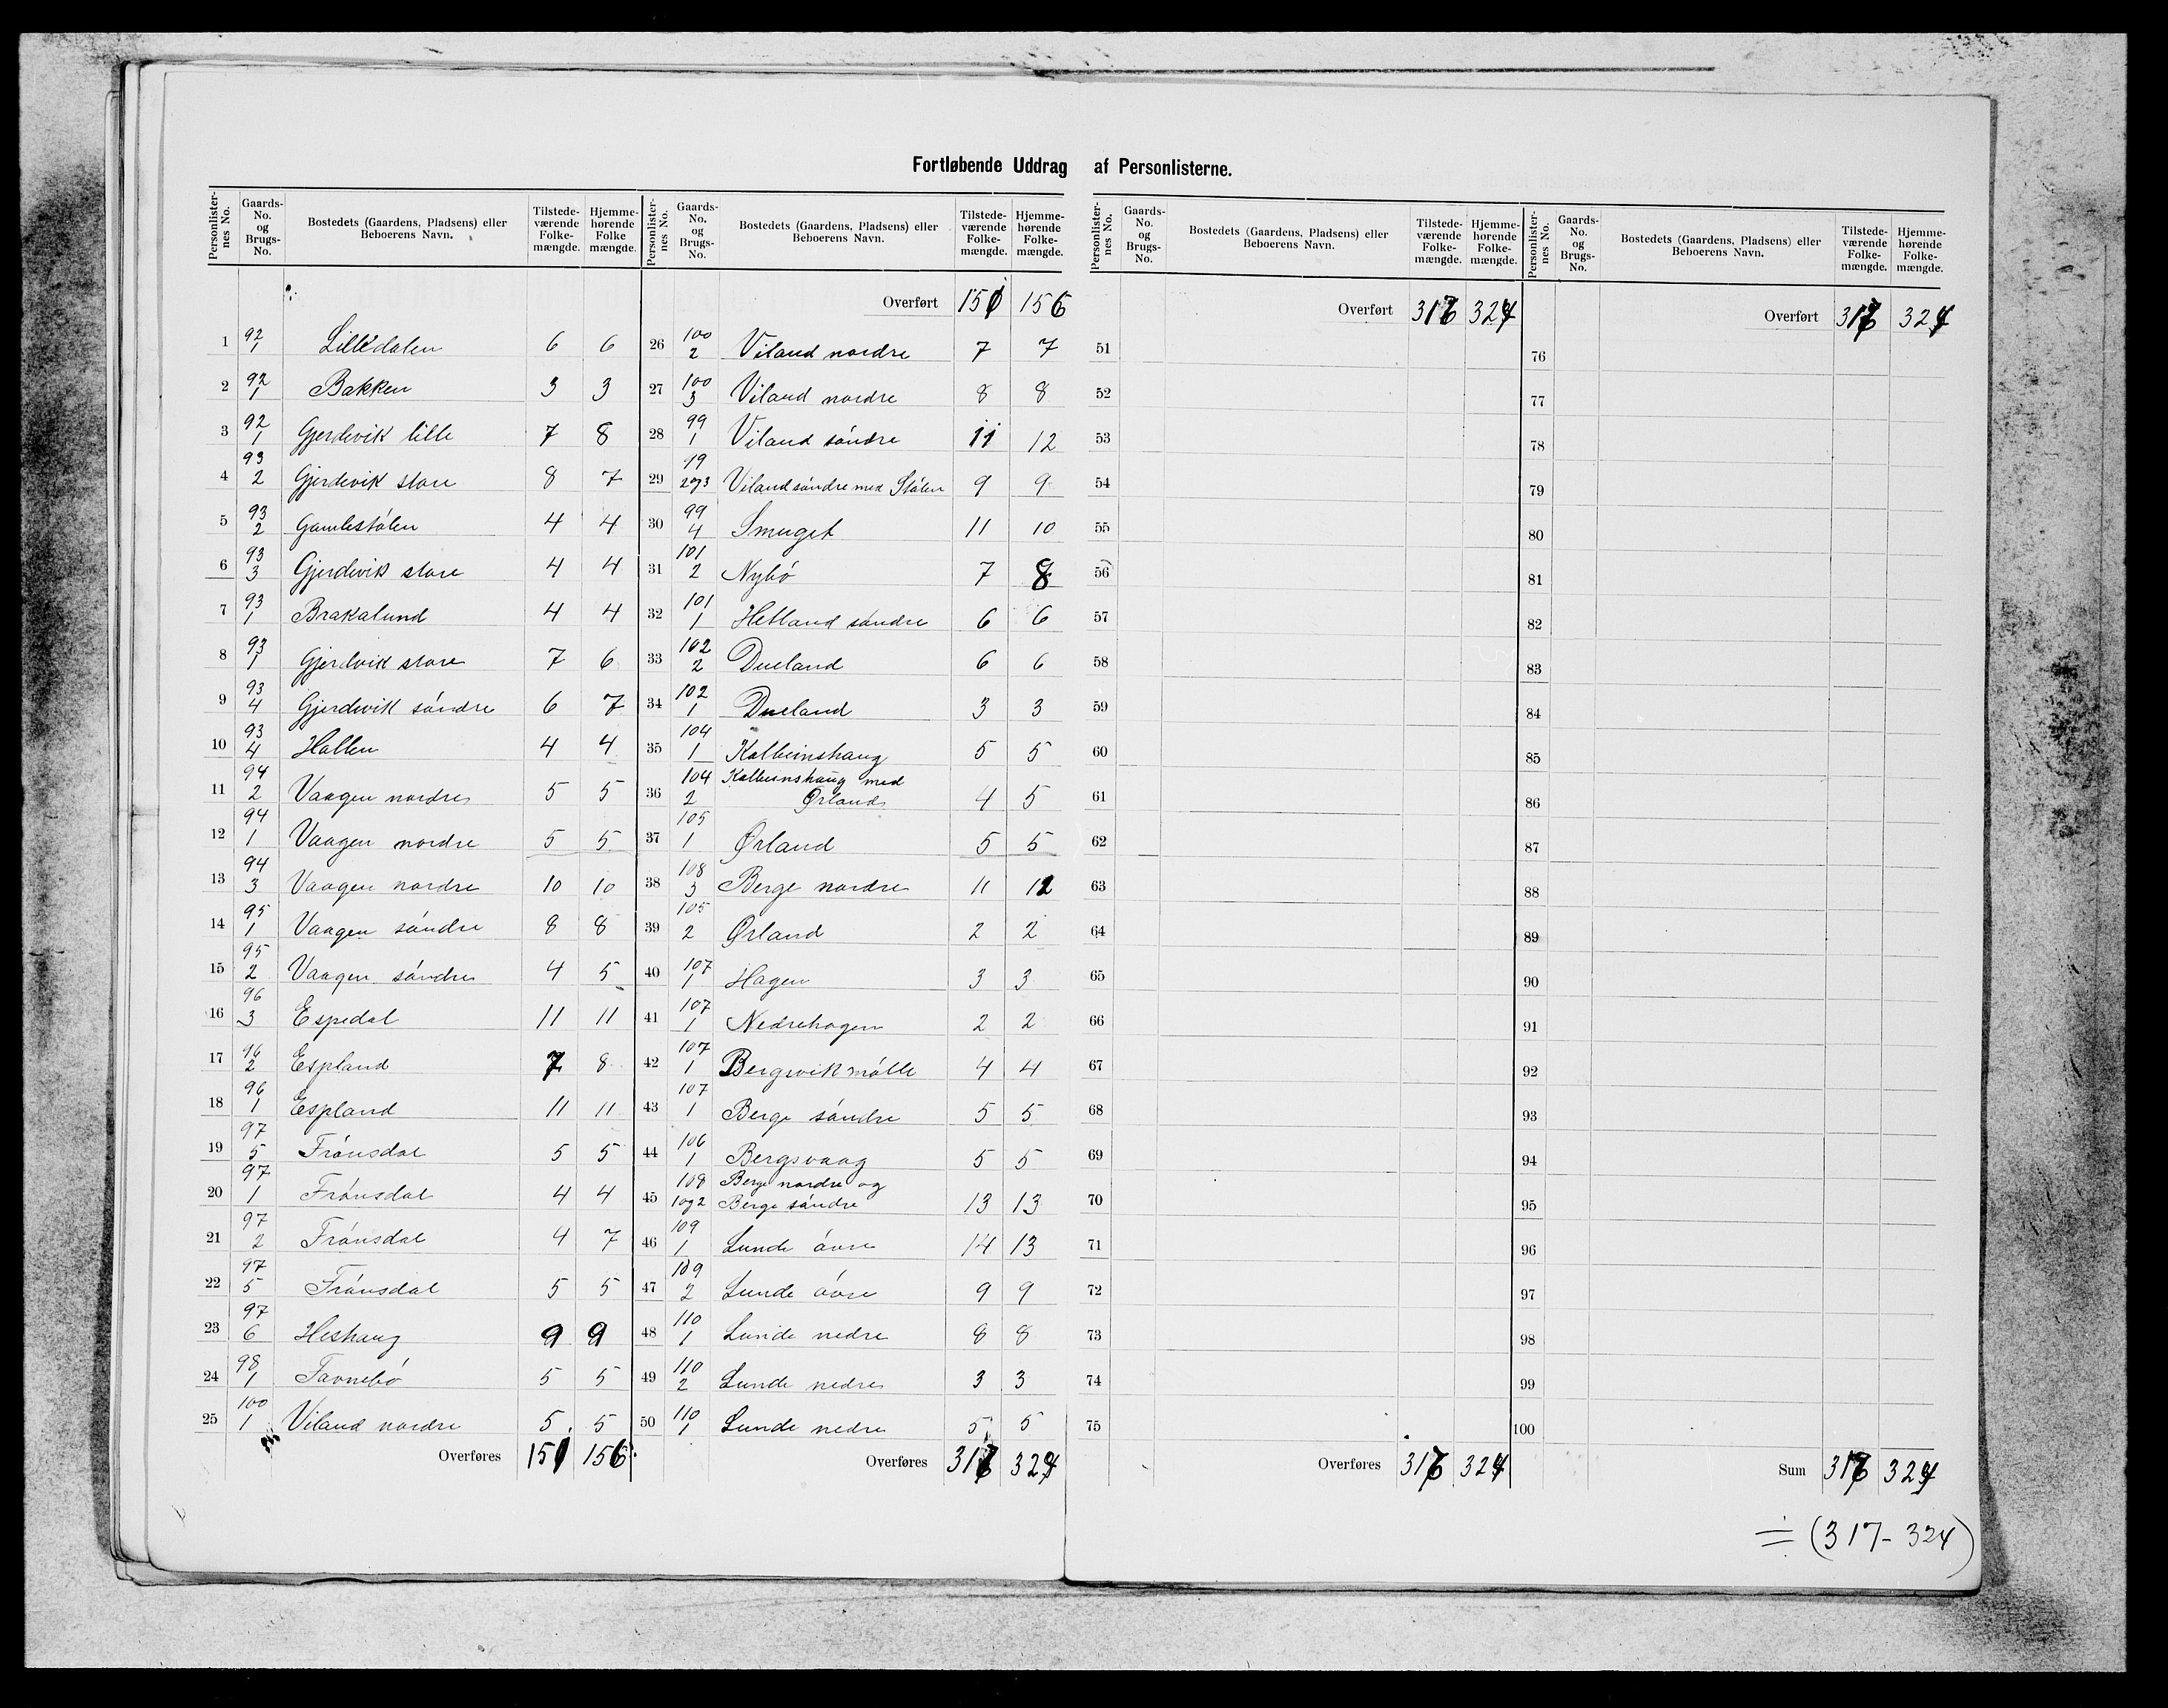 Fortløbende Uddrag af Personlisterne.
Personlisternes No. Gaards-No. og Brugs-No. Bostedets (Gaardens, Pladsens) eller Beboerens Navn. Tilstedeværende Folkemængde. Hjemmehørende Folkemængde.
1 92 1 Lilledalen 6 6
2 92 1 Bakken 3 3
3 92 1 Gjerdevik lille 7 8
4 93 2 Gjerdevik store 8 7
5 93 2 Gamlestólen 4 4
6 93 3 Gjerdevik store 4 4
7 93 1 Brakalund 4 4
8 93 1 Gjerdvik store 7 6
9 93 4 Gjerdevik sóndre 6 7
10 93 4 Hallen 4 4
11 94 2 Vaagen nordre 5 5
12 94 1 Vaagen nordre 5 5
13 94 3 Vaagen nordre 10 10
14 95 1 Vaagen sóndre 8 8
15 95 2 Vaagen sóndre 4 5
16 96 3 Espedal 11 11
17 96 2 Espland 7 8
18 96 1 Espland 11 11
19 97 5 Frónsdal 5 5
20 97 1 Frónsdal 4 4
21 97 2 Frónsdal 4 7
22 97 5 Frónsdal 5 5
23 97 6 Heshaug 9 9
24 98 1 Favnebó 5 5
25 100 1 Viland nordre 5 5
Overføres 151 156
Personlisternes No. Gaards-No. og Brugs-No. Bostedets (Gaardens, Pladsens) eller Beboerens Navn. Tilstedeværende Folkemængde. Hjemmehørende Folkemængde.
Overført 151 156
26 100 2 Viland nordre 7 7
27 100 3 Viland nordre 8 8
28 99 1 Viland sóndre 11 12
29 99 2og3 Viland sóndre med Stólen 9 9
30 99 4 Smuget 11 10
31 101 2 Nybó 7 8
32 101 1 Hetland sóndre 6 6
33 102 2 Dueland 6 6
34 102 1 Dueland 3 3
35 104 1 Kolbeinshaug 5 5
36 104 2 Kolbeinshaug med
Ørland 4 5
37 105 1 Ørland 5 5
38 108 3 Berge nordre 11 12
39 105 2 Ørland 2 2
40 107 1 Hagen 3 3
41 107 1 Nedrehagen 2 2
42 107 1 Bergsvik mólle 4 4
43 107 1 Berge sóndre 5 5
44 106 1 Bergsvaag 5 5
45 108 1og2 Berge nordre og
Berge sóndre 13 13
46 109 1 Lunde óvre 14 13
47 109 2 Lunde óvre 9 9
48 110 1 Lunde nedre 8 8
49 110 2 Lunde nedre 3 3
50 110 1 Lunde nedre 5 5
Overføres 317 324
Personlisternes No. Gaards-No. og Brugs-No. Bostedets (Gaardens, Pladsens) eller Beboerens Navn. Tilstedeværende Folkemængde. Hjemmehørende Folkemængde.
Overført 317 324
51
52
53
54
55
56
57
58
59
60
61
62
63
64
65
66
67
68
69
70
71
72
73
74
75
Overføres 317 324
Personlisternes No. Gaards-No. og Brugs-No. Bostedets (Gaardens, Pladsens) eller Beboerens Navn. Tilstedeværende Folkemængde. Hjemmehørende Folkemængde.
Overført 317 324
76
77
78
79
80
81
82
83
84
85
86
87
88
89
90
91
92
93
94
95
96
97
98
99
100
Sum 317 324
= (317-324)